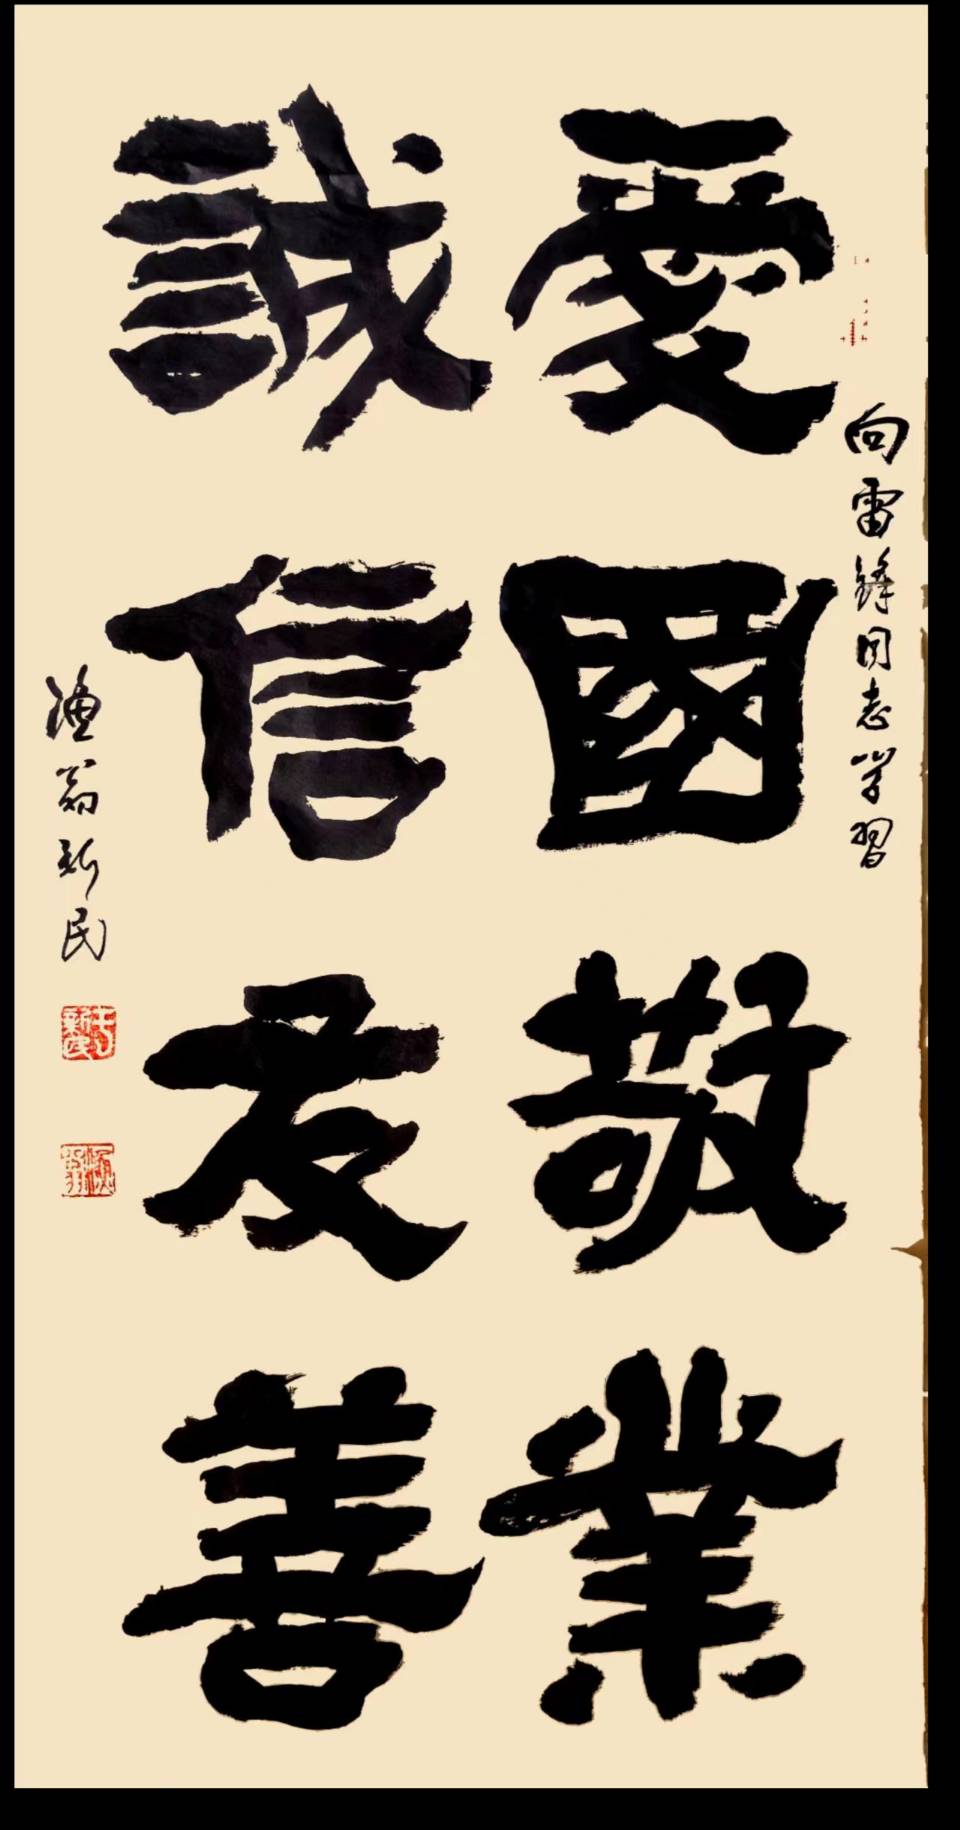 向雷锋同志学習
愛國敬業
誠信友善
漁翁新民